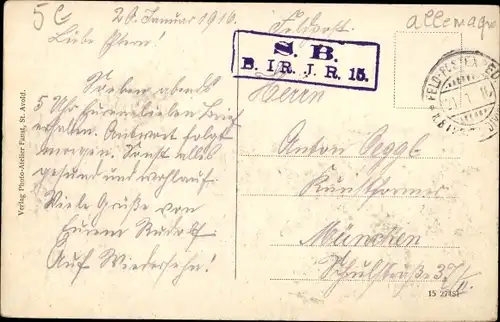 5£
allemagne
20. Januar 1916.
Feldpost.
Liebe Eltern!
S. B.
B. I R. J. R. 15.
Herrn
Soeben abends
5 Uhr Euren lieben Brief
erhalten. Antwort folgt
morgen. Sonst alles
gesund und wohlauf.
Viele Grüße von
Eurem Rudolf
Auf Wiedersehn!
Anton Oeggl
Kunstformer
München
Schulstraße 37/II.
Verlag Photo-Atelier Faust, St. Avold.
15 27451